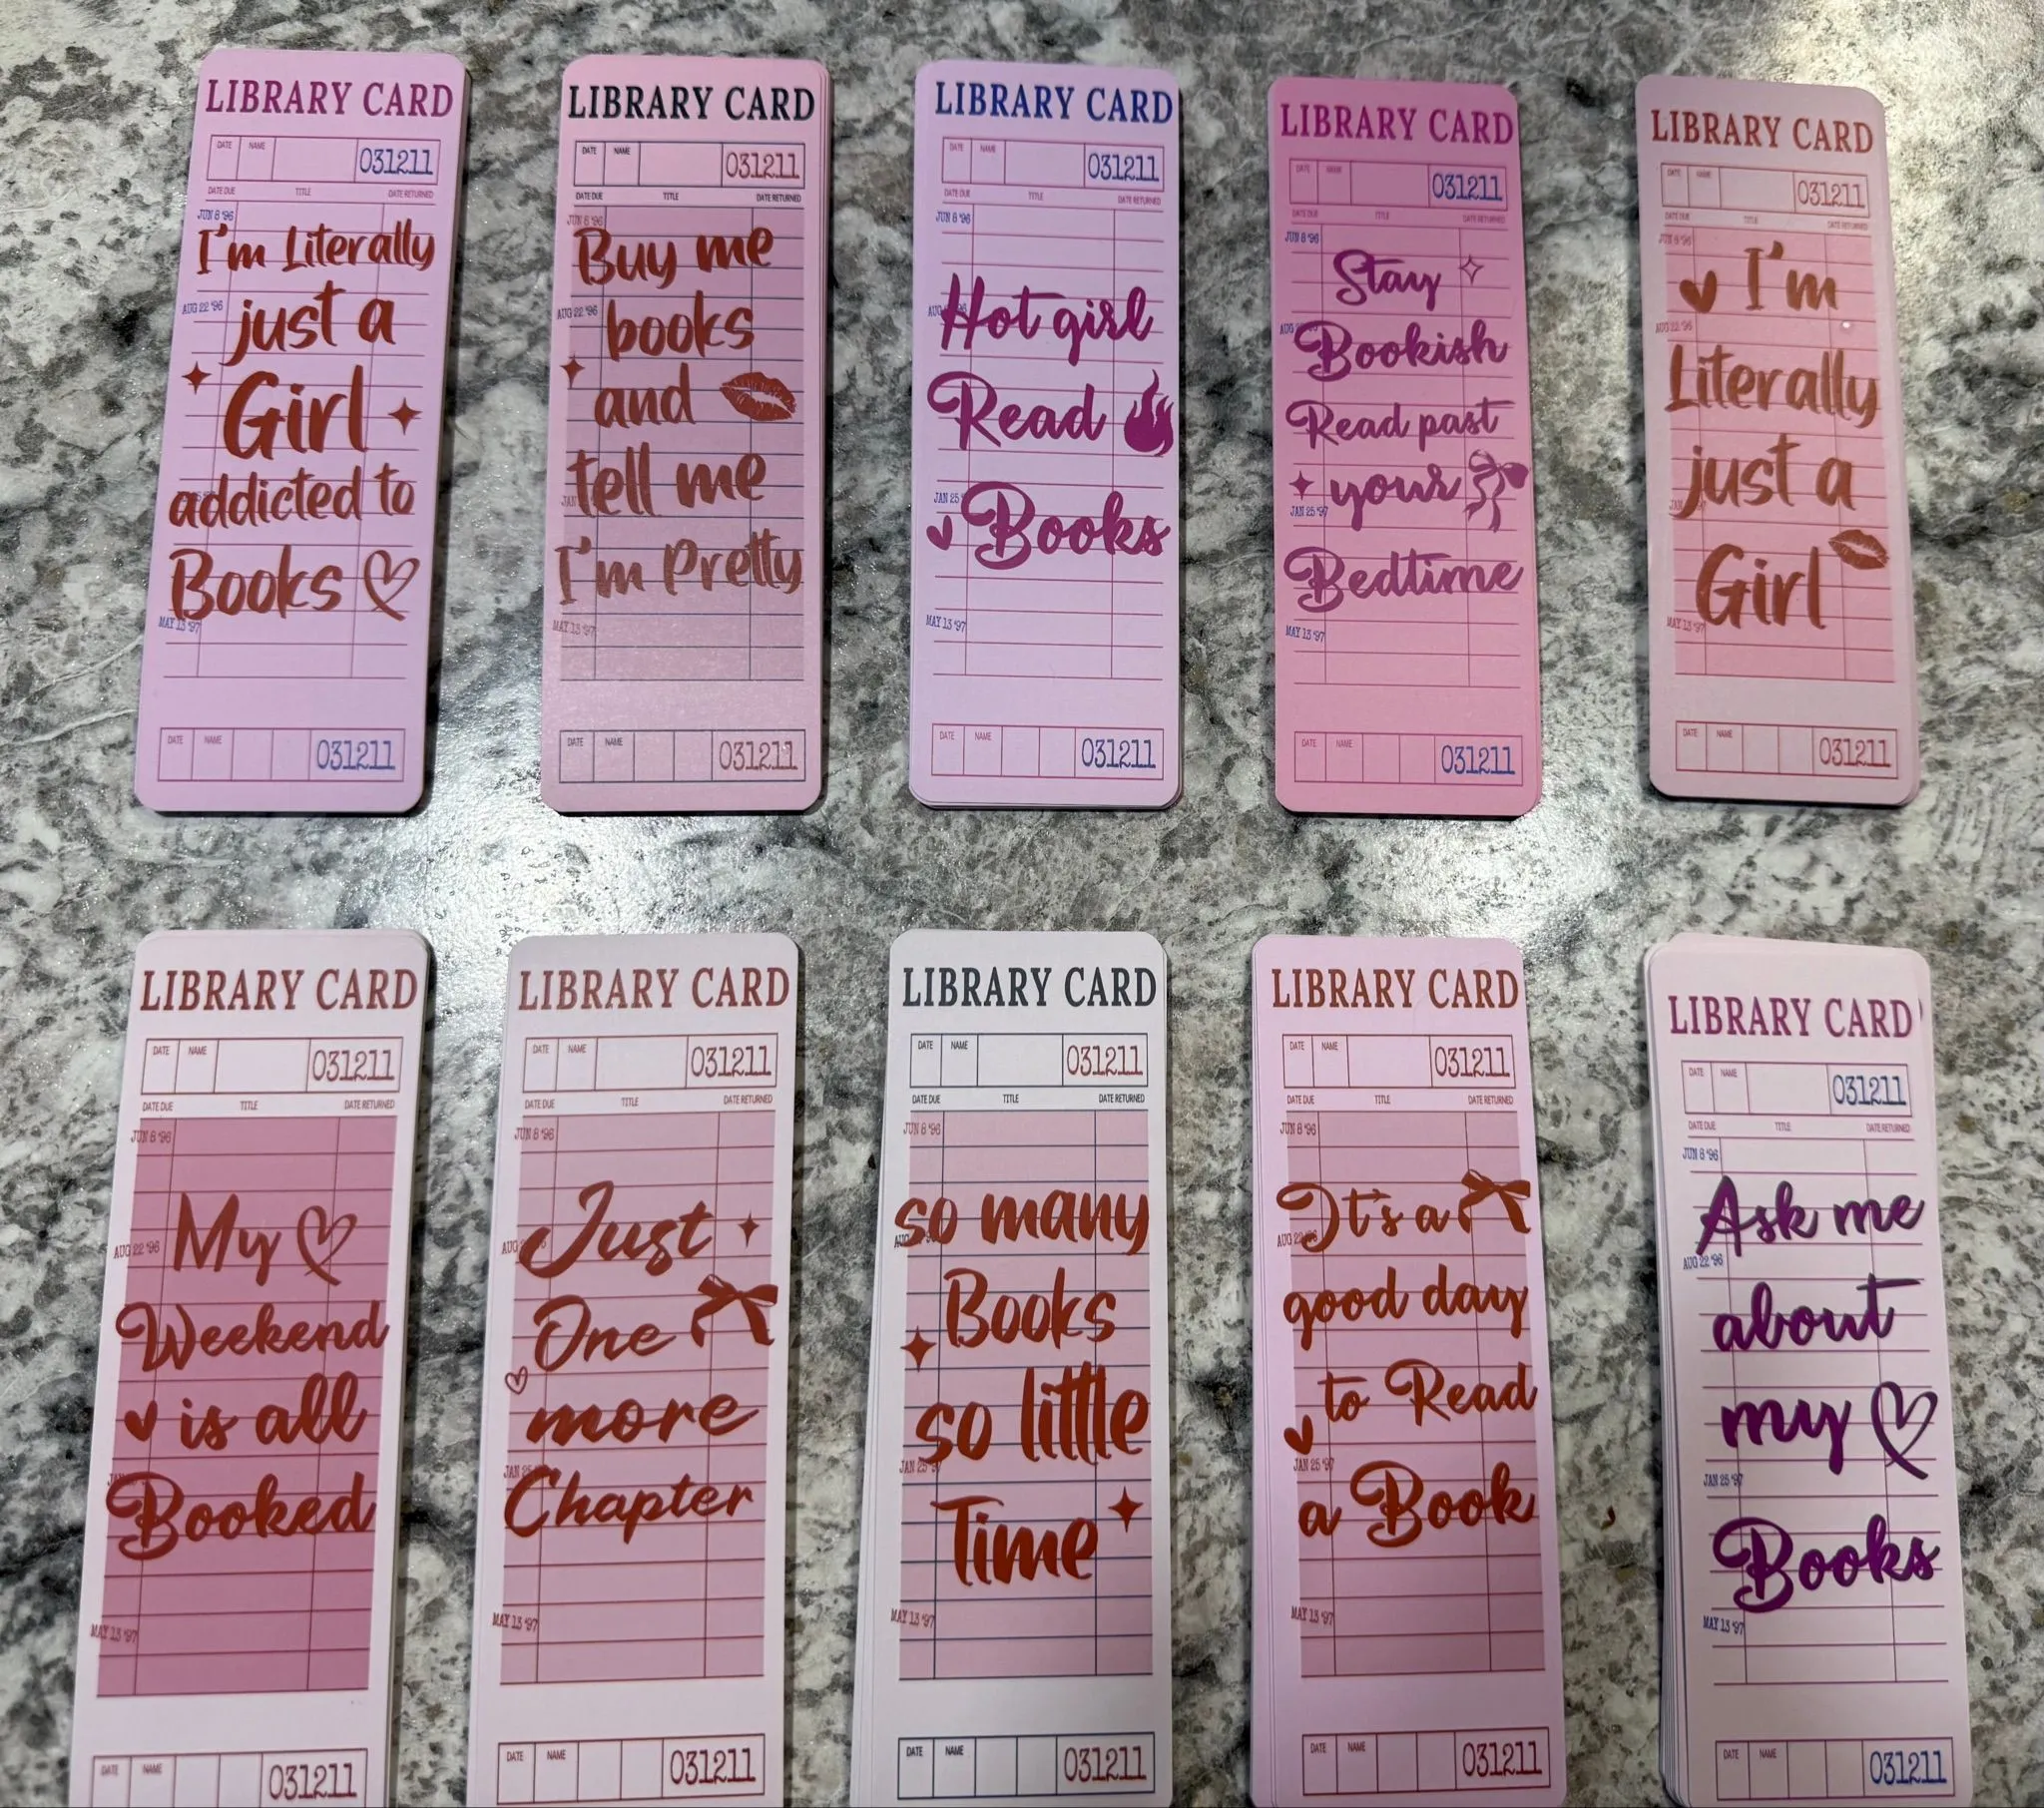 LIBRARY CARD
DATE NAME 031211
DATE DUE TITLE DATE RETURNED
JUN 8 '96
I'm Literally
AUG 22 '96
just a
Girl
addicted to
Books
MAY 13 '97
DATE NAME 031211
LIBRARY CARD
DATE NAME 031211
DATE DUE TITLE DATE RETURNED
JUN 8 '96
Buy me
AUG 22 '96
books
and
tell me
JAN
I'm Pretty
MAY 13 '97
DATE NAME 031211
LIBRARY CARD
DATE NAME 031211
DATE DUE TITLE DATE RETURNED
JUN 8 '96
AUG
Hot girl
Read
JAN 25
Books
MAY 13 '97
DATE NAME 031211
LIBRARY CARD
DATE NAME 031211
DATE DUE TITLE DATE RETURNED
JUN 8 '96
Stay
AUG
Bookish
Read past
your
JAN 25 '97
Bedtime
MAY 13 '97
DATE NAME 031211
LIBRARY CARD
DATE NAME 031211
DATE DUE TITLE DATE RETURNED
JUN 8 '96
I'm
AUG 22 '96
Literally
just a
JAN
Girl
MAY 13 '97
DATE NAME 031211
LIBRARY CARD
DATE NAME 031211
DATE DUE TITLE DATE RETURNED
JUN 8 '96
My
AUG 22 '96
Weekend
is all
Booked
MAY 13 '97
DATE NAME 031211
LIBRARY CARD
DATE NAME 031211
DATE DUE TITLE DATE RETURNED
JUN 8 '96
Just
AUG
One
more
JAN 25
Chapter
MAY 13 '97
DATE NAME 031211
LIBRARY CARD
DATE NAME 031211
DATE DUE TITLE DATE RETURNED
JUN 8 '96
so many
AUG
Books
so little
JAN 25 '97
Time
MAY 13 '97
DATE NAME 031211
LIBRARY CARD
DATE NAME 031211
DATE DUE TITLE DATE RETURNED
JUN 8 '96
It's a
AUG 22 '96
good day
to Read
JAN 25 '97
a Book
MAY 13 '97
DATE NAME 031211
LIBRARY CARD
DATE NAME 031211
DATE DUE TITLE DATE RETURNED
JUN 8 '96
Ask me
AUG 22 '96
about
my
JAN 25 '97
Books
MAY 13 '97
DATE NAME 031211